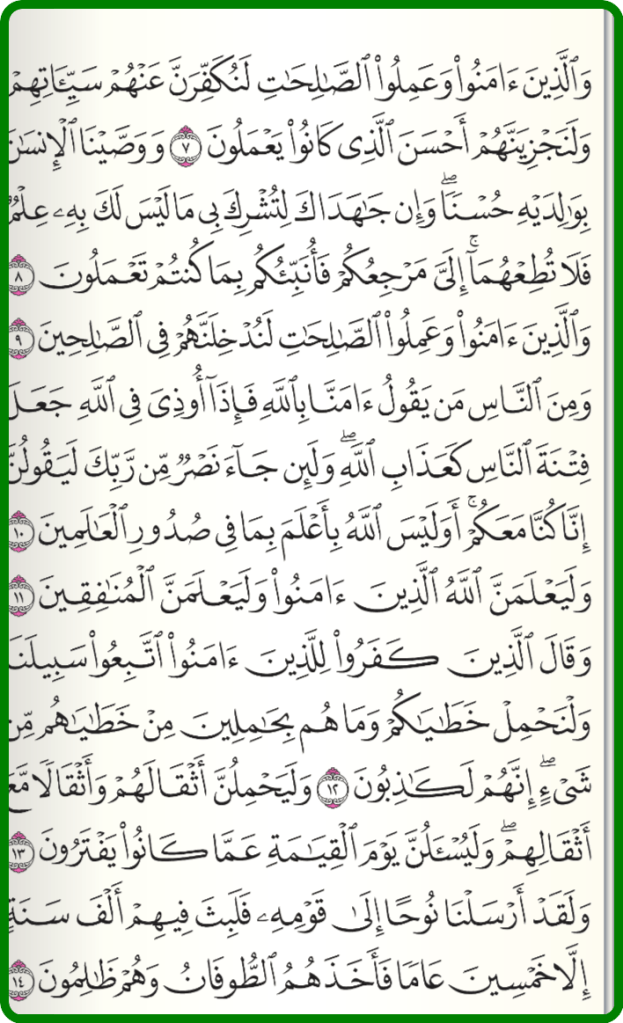 وَٱلَّذِينَ ءَامَنُوا۟ وَعَمِلُوا۟ ٱلصَّـٰلِحَـٰتِ لَنُكَفِّرَنَّ عَنْهُمْ سَيِّـَٔاتِهِمْ
وَلَنَجْزِيَنَّهُمْ أَحْسَنَ ٱلَّذِى كَانُوا۟ يَعْمَلُونَ ٧ وَوَصَّيْنَا ٱلْإِنسَـٰنَ
بِوَٰلِدَيْهِ حُسْنًا ۖ وَإِن جَـٰهَدَاكَ لِتُشْرِكَ بِى مَا لَيْسَ لَكَ بِهِۦ عِلْمٌ
فَلَا تُطِعْهُمَآ ۚ إِلَىَّ مَرْجِعُكُمْ فَأُنَبِّئُكُم بِمَا كُنتُمْ تَعْمَلُونَ ٨
وَٱلَّذِينَ ءَامَنُوا۟ وَعَمِلُوا۟ ٱلصَّـٰلِحَـٰتِ لَنُدْخِلَنَّهُمْ فِى ٱلصَّـٰلِحِينَ ٩
وَمِنَ ٱلنَّاسِ مَن يَقُولُ ءَامَنَّا بِٱللَّهِ فَإِذَآ أُوذِىَ فِى ٱللَّهِ جَعَلَ
فِتْنَةَ ٱلنَّاسِ كَعَذَابِ ٱللَّهِ ۖ وَلَئِن جَآءَ نَصْرٌ مِّن رَّبِّكَ لَيَقُولُنَّ
إِنَّا كُنَّا مَعَكُمْ ۚ أَوَلَيْسَ ٱللَّهُ بِأَعْلَمَ بِمَا فِى صُدُورِ ٱلْعَـٰلَمِينَ ١٠
وَلَيَعْلَمَنَّ ٱللَّهُ ٱلَّذِينَ ءَامَنُوا۟ وَلَيَعْلَمَنَّ ٱلْمُنَـٰفِقِينَ ١١
وَقَالَ ٱلَّذِينَ كَفَرُوا۟ لِلَّذِينَ ءَامَنُوا۟ ٱتَّبِعُوا۟ سَبِيلَنَا
وَلْنَحْمِلْ خَطَـٰيَـٰكُمْ وَمَا هُم بِحَـٰمِلِينَ مِنْ خَطَـٰيَـٰهُم مِّن
شَىْءٍ ۖ إِنَّهُمْ لَكَـٰذِبُونَ ١٢ وَلَيَحْمِلُنَّ أَثْقَالَهُمْ وَأَثْقَالًا مَّعَ
أَثْقَالِهِمْ ۖ وَلَيُسْـَٔلُنَّ يَوْمَ ٱلْقِيَـٰمَةِ عَمَّا كَانُوا۟ يَفْتَرُونَ ١٣
وَلَقَدْ أَرْسَلْنَا نُوحًا إِلَىٰ قَوْمِهِۦ فَلَبِثَ فِيهِمْ أَلْفَ سَنَةٍ
إِلَّا خَمْسِينَ عَامًا فَأَخَذَهُمُ ٱلطُّوفَانُ وَهُمْ ظَـٰلِمُونَ ١٤